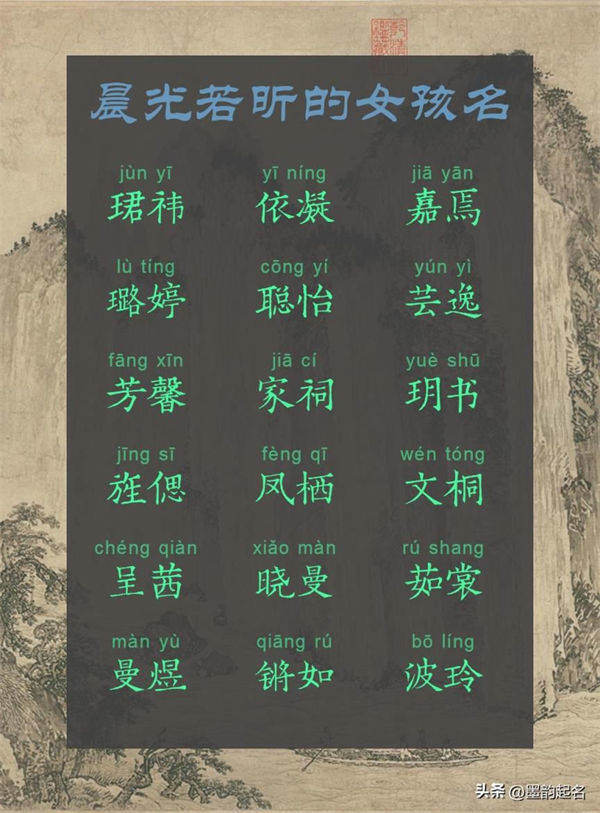 晨光若昕的女孩名
jùn yī yī níng jiā yān
珺祎 依凝 嘉焉
lù tíng cōng yí yún yì
璐婷 聪怡 芸逸
fāng xīn jiā cí yuè shū
芳馨 家祠 玥书
jīng sī fèng qī wén tóng
旌偲 凤栖 文桐
chéng qiàn xiǎo màn rú shang
呈茜 晓曼 茹裳
màn yù qiāng rú bō líng
曼煜 锵如 波玲
头条 @墨韵起名